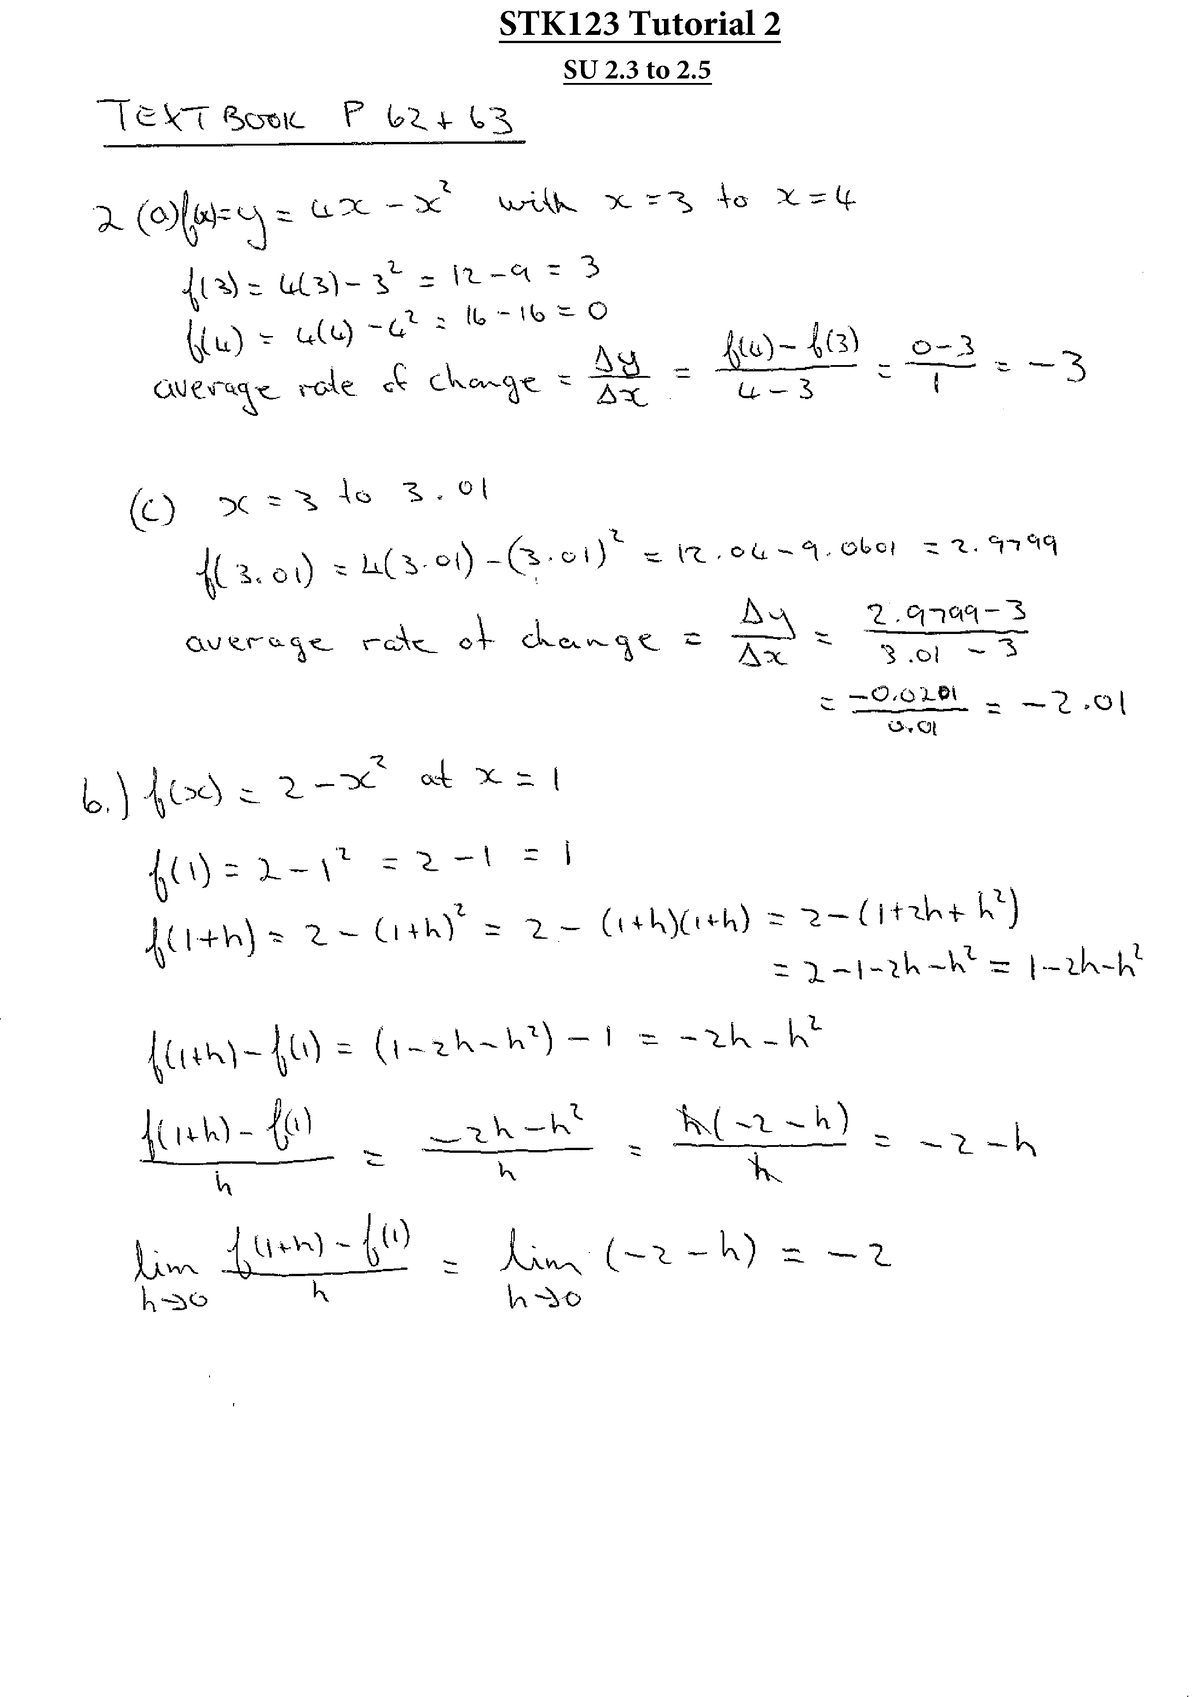 STK123 Tutorial 2
SU 2.3 to 2.5
TEXTBOOK P 62 + 63
2 (a) f(x) = y = 4x - x² with x = 3 to x = 4
f(3) = 4(3) - 3² = 12 - 9 = 3
f(4) = 4(4) - 4² = 16 - 16 = 0
average rate of change = Δy/Δx = (f(4) - f(3))/(4 - 3) = (0 - 3)/1 = -3
(c) x = 3 to 3.01
f(3.01) = 4(3.01) - (3.01)² = 12.04 - 9.0601 = 2.9799
average rate of change = Δy/Δx = (2.9799 - 3)/(3.01 - 3)
= -0.0201/0.01 = -2.01
6.) f(x) = 2 - x² at x = 1
f(1) = 2 - 1² = 2 - 1 = 1
f(1+h) = 2 - (1+h)² = 2 - (1+h)(1+h) = 2 - (1+2h+h²)
= 2 - 1 - 2h - h² = 1 - 2h - h²
f(1+h) - f(1) = (1 - 2h - h²) - 1 = -2h - h²
(f(1+h) - f(1))/h = (-2h - h²)/h = h(-2 - h)/h = -2 - h
lim h→0 (f(1+h) - f(1))/h = lim h→0 (-2 - h) = -2